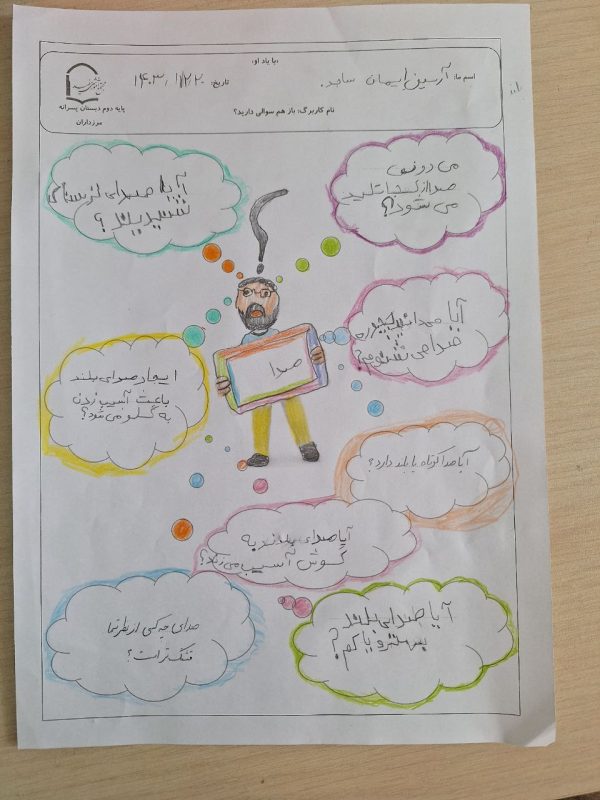 بیا یاد او:
اسم ما: آرسین، ایمان ساجد.
تاریخ: ۱۴۰۳/۱۲/۲۰
پایه دوم دبستان پسرانه
مرزداران
نام کاربرگ: باز هم سوالی دارید؟
می دونی
صدا از کجا تولید
می شود؟
آیا صدای ترسناک
شنیدید؟
آیا میدانید چجوری
صدا می شنویم؟
صدا
ایجاد صدای بلند
باعث آسیب زدن
به گلو می شود؟
آیا صدا کوتاه یا بلند دارد؟
آیا صدای بلند به
گوش آسیب می زند؟
صدای چه کسی از نظر شما
قشنگتر است؟
آیا صدای بلند
بهتره یا کم؟